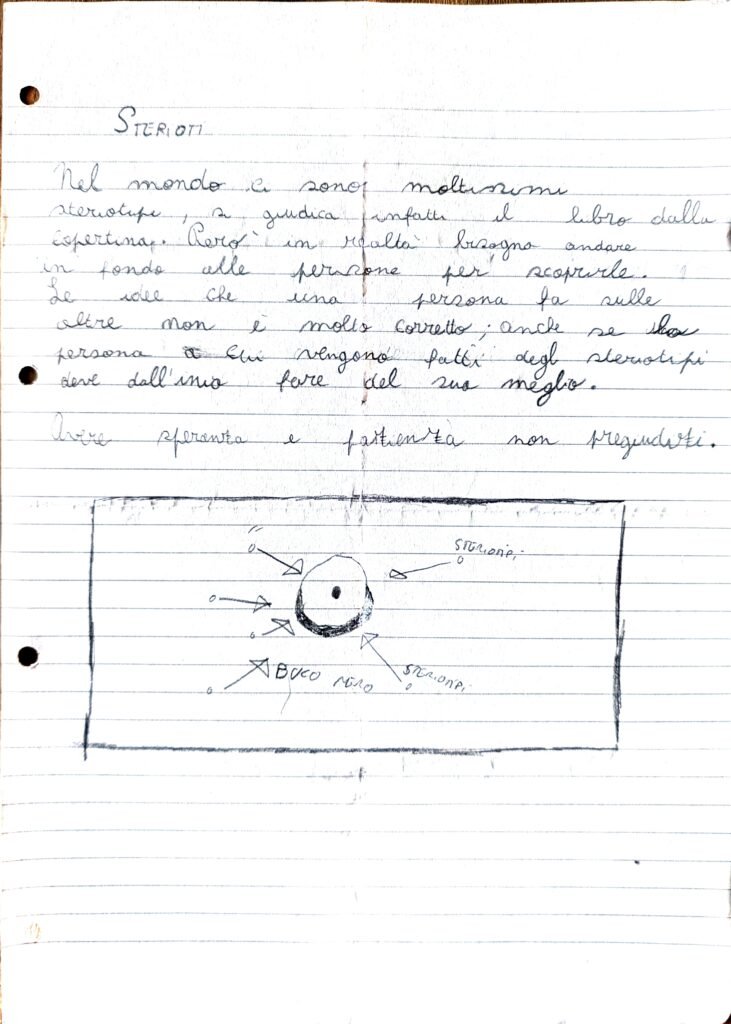 STERIOTI
Nel mondo ci sono moltissimi
stereotipi, si giudica infatti il libro dalla
copertina. Però in realtà bisogna andare
in fondo alle persone per scoprirle.
Le idee che una persona fa sulle
altre non è molto corretto; anche se la
persona a cui vengono fatti degli steriotipi
deve dall'inizio fare del suo meglio.
Avere speranza e pazienza non pregiudizi.
STERIOTIPI
BUCO NERO
STERIOTIPI